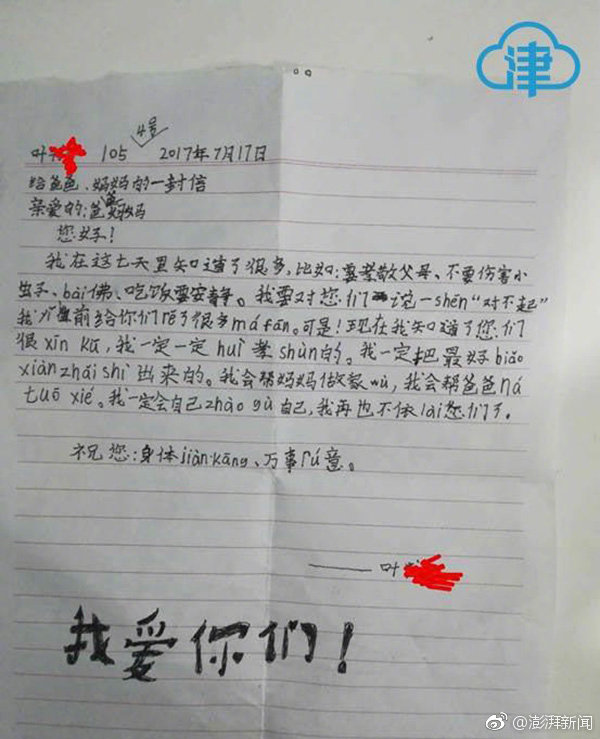 津
4号
叶 105 2017年7月17日
给爸爸、妈妈的一封信
亲爱的:爸爸妈妈
您好!
我在这七天里知道了很多,比如:要孝敬父母、不要伤害小
虫子、bài佛、吃饭要安静。我要对您们说一shēn“对不起”
我以前给你们rě了很多má fán。可是!现在我知道了您们
很xīn kǔ,我一定一定huì孝shùn的。我一定把最好biǎo
xiàn zhǎi shì出来的。我会帮妈妈做家wù,我会帮爸爸ná
tuō xié。我一定会自己zhào gù自己,我再也不依lài您们了。
祝您:身体jiàn kāng、万事rú意。
——叶
我爱你们!
@澎湃新闻